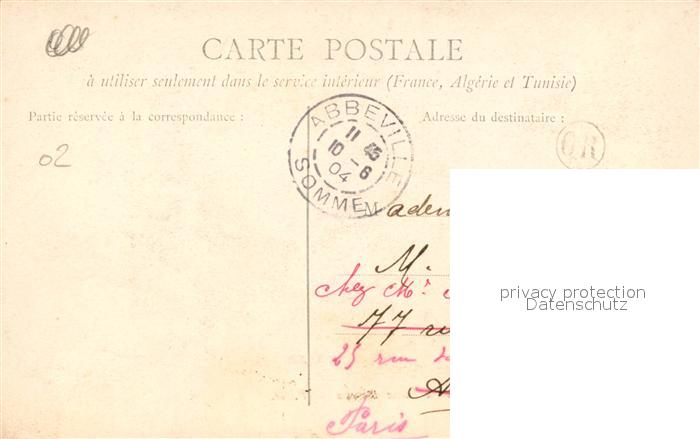 CARTE POSTALE
à utiliser seulement dans le service intérieur (France, Algérie et Tunisie)
Partie réservée à la correspondance :
Adresse du destinataire :
ABBEVILLE
11 45
10 - 6
04
SOMME
OR
02
Madem
M.
chez Mr
77 rue
25 rue
Paris
privacy protection
Datenschutz